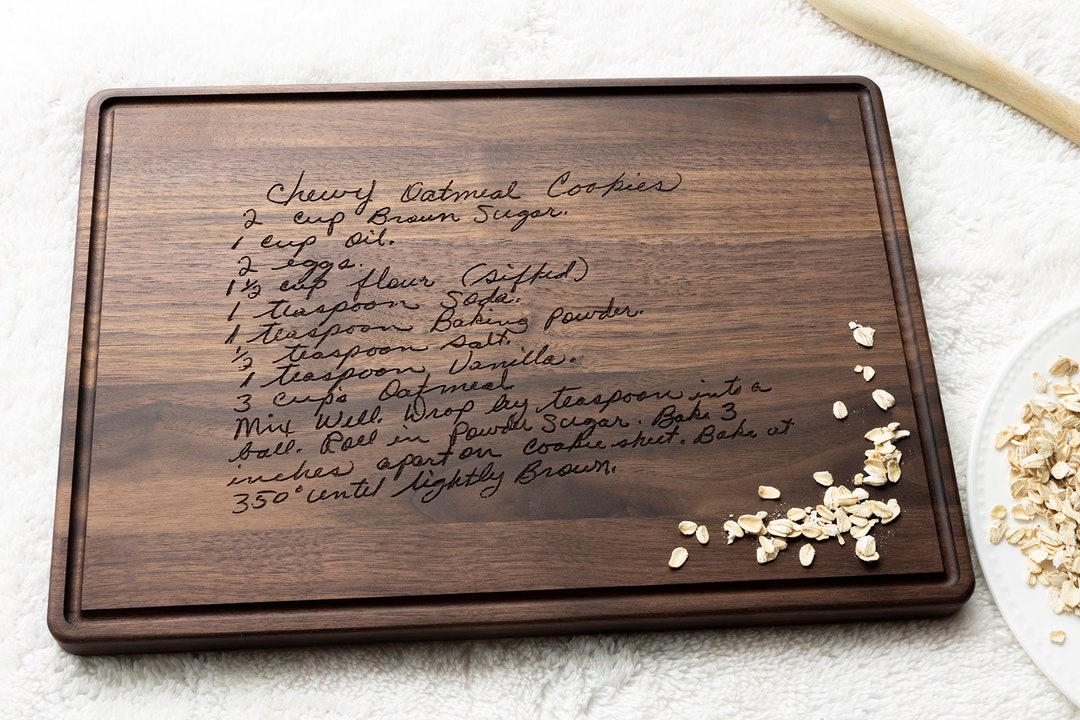 Chewy Oatmeal Cookies
2 cup Brown Sugar.
1 cup oil.
2 eggs.
1 1/2 cup flour (sifted)
1 teaspoon Soda.
1 teaspoon Baking Powder.
1/2 teaspoon salt.
1 teaspoon Vanilla.
3 cups Oatmeal
Mix Well. Drop by teaspoon into a
ball. Roll in Powder Sugar. Bake 3
inches apart on cookie sheet. Bake at
350° until lightly Brown.